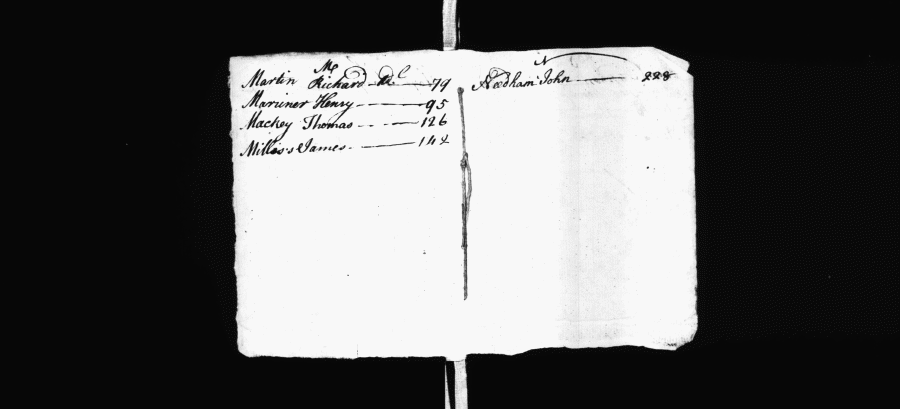 M
Martin Richard 79
Mariner Henry 95
Mackey Thomas 126
James 142
N
Needham John 228